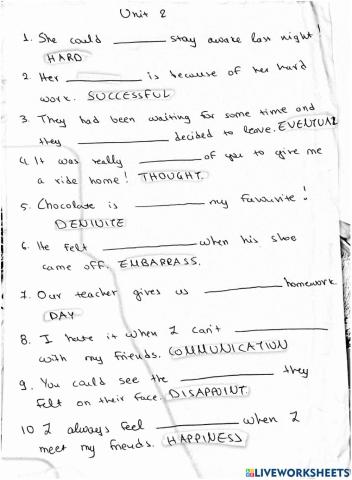 Unit 2
1. She could ________ stay awake last night
HARD
2. Her ________ is because of her hard
work. SUCCESSFUL
3. They had been waiting for some time and
they ________ decided to leave. EVENTUAL
4. It was really ________ of you to give me
a ride home! THOUGHT.
5. Chocolate is ________ my favourite!
DENINITE
6. He felt ________ when his shoe
came off. EMBARRASS.
7. Our teacher gives us ________ homework.
DAY
8. I hate it when I can't ________
with my friends. COMMUNICATION
9. You could see the ________ they
felt on their face. DISAPPOINT.
10 I always feel ________ when I
meet my friends. HAPPINESS
LIVEWORKSHEETS